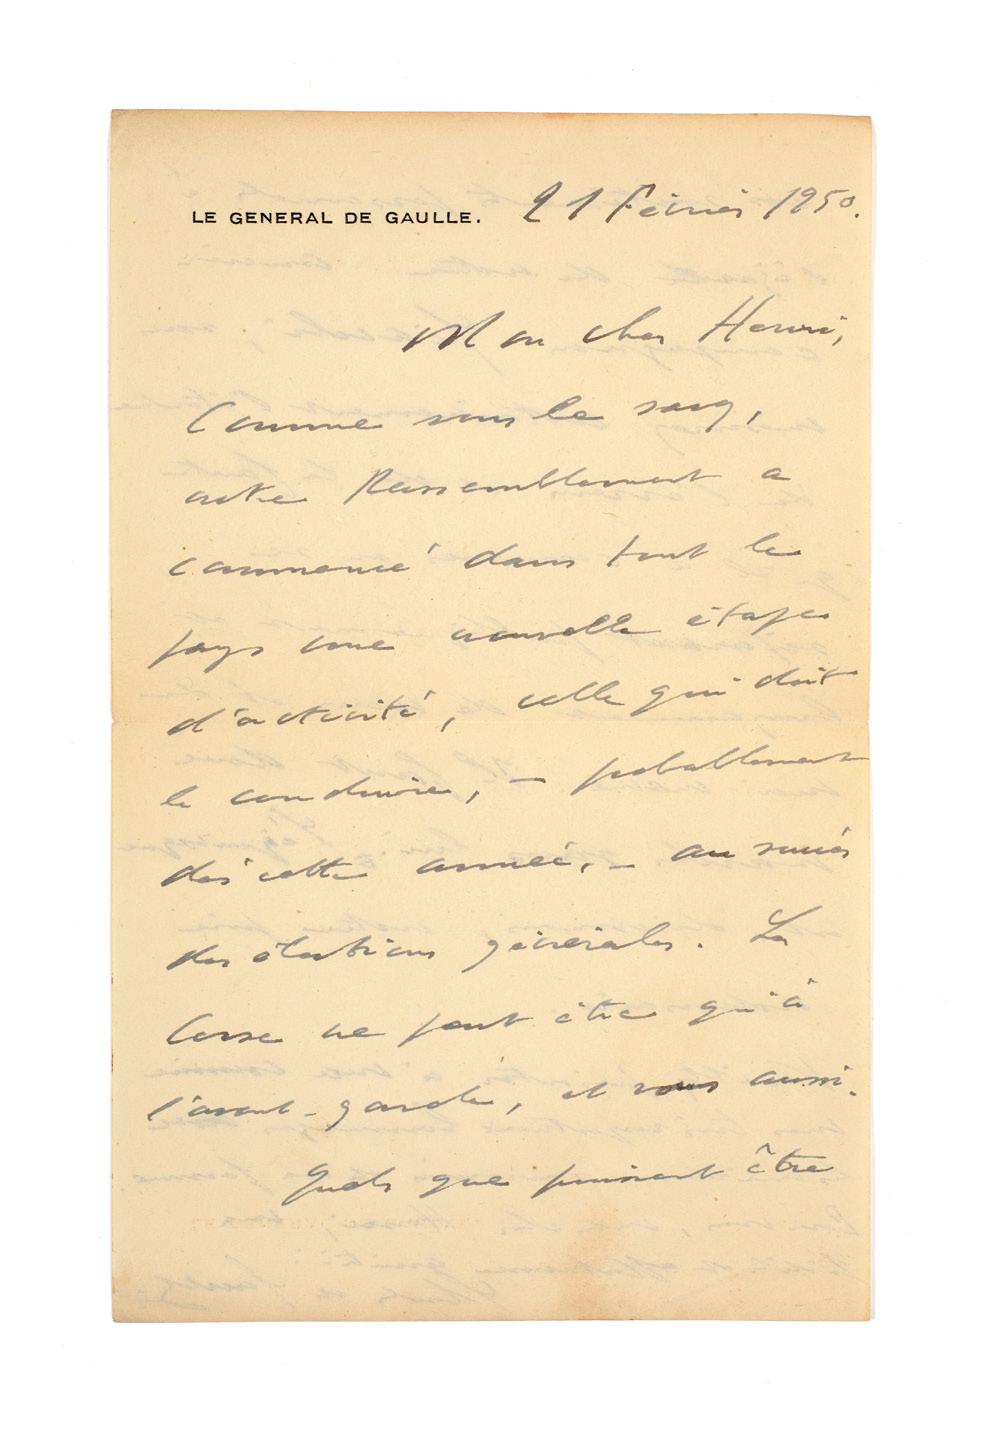 LE GENERAL DE GAULLE. 21 Février 1950.
Mon cher Henri,
Comme vous le savez,
notre Rassemblement a
commencé dans tout le
pays une nouvelle étape
d'activité, celle qui doit
le conduire, – probablement
dès cette année, – au succès
des élections générales. La
Corse ne peut être qu'à
l'avant-garde, et vous aussi.
Quels que puissent être